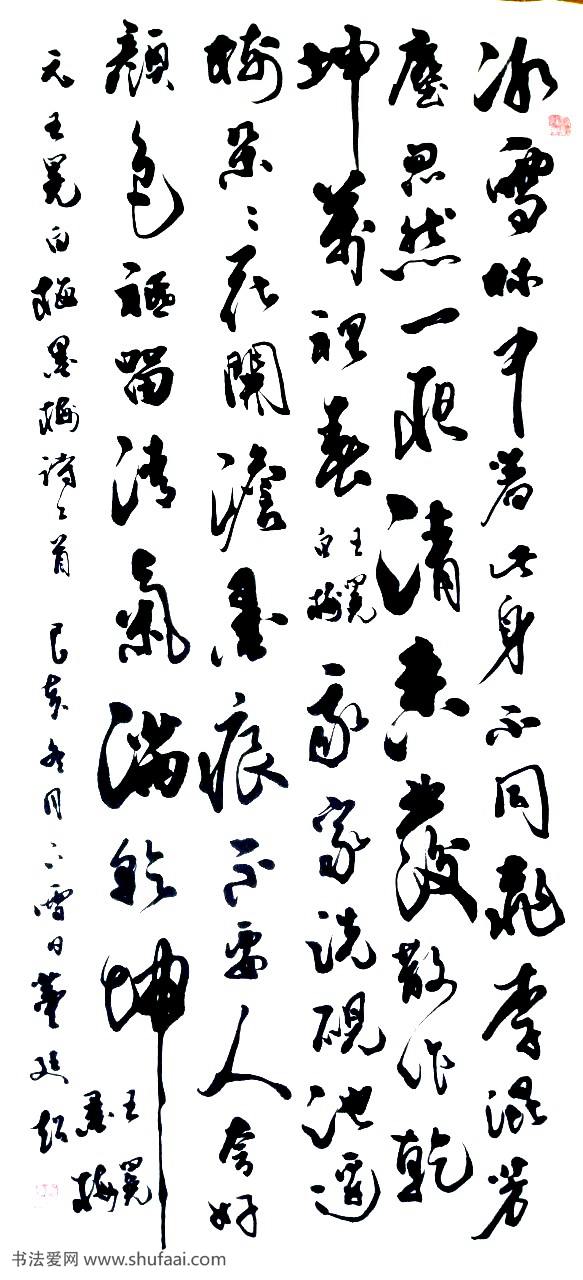 冰雪林中著此身不同桃李混芳
塵忽然一夜清香發散作乾
坤萬裡春
王冕
白梅
我家洗硯池邊
樹朵〻花開澹墨痕不要人夸好
顏色祗留清氣滿乾坤
王冕
墨梅
元王冕白梅墨梅詩二首 己亥冬月下雪日
书法爱网 www.shufaai.com